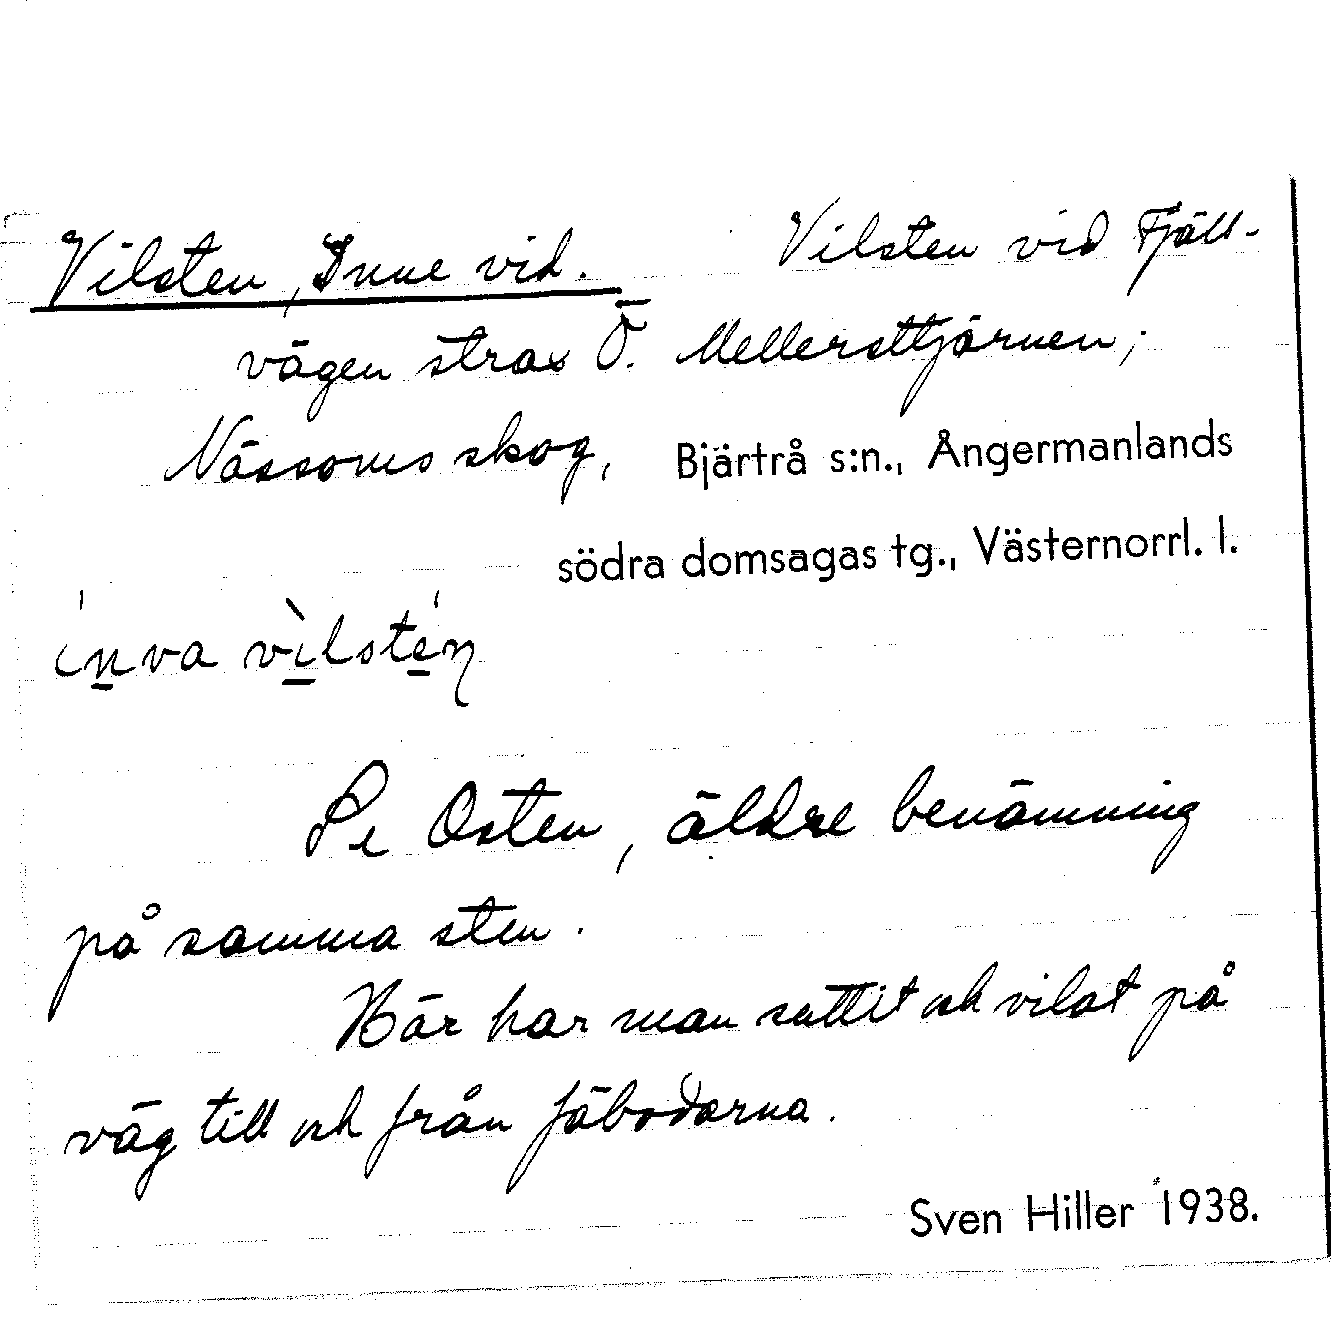 Vilsten, Inne vid. Vilsten vid Fjäll-
vägen strax Ö. Mellersttjärnen;
Nässoms skog, Bjärtrå s:n., Ångermanlands
södra domsagas tg., Västernorrl. l.
Se Osten, äldre benämning
på samma sten.
Här har man suttit och vilat på
väg till och från fäbodarna.
Sven Hiller 1938.